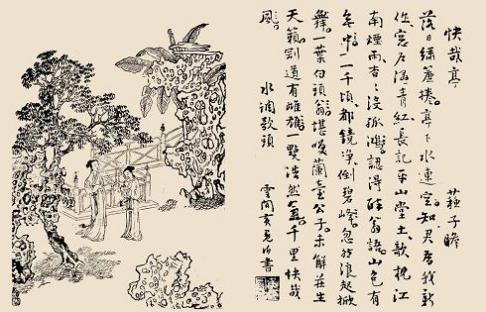 快哉亭 蘇子瞻
落日綉簾捲亭下水連空知君為我新
作窓戶濕青紅長記平山堂上欹枕江
南煙雨杳杳沒孤鴻認得醉翁語山色有
無中一千頃都鏡淨倒碧峰忽然浪起掀
舞一葉白頭翁堪笑蘭臺公子未解莊生
天籟剛道有雌雄一點浩然氣千里快哉
風 水調歌頭
雲間 書